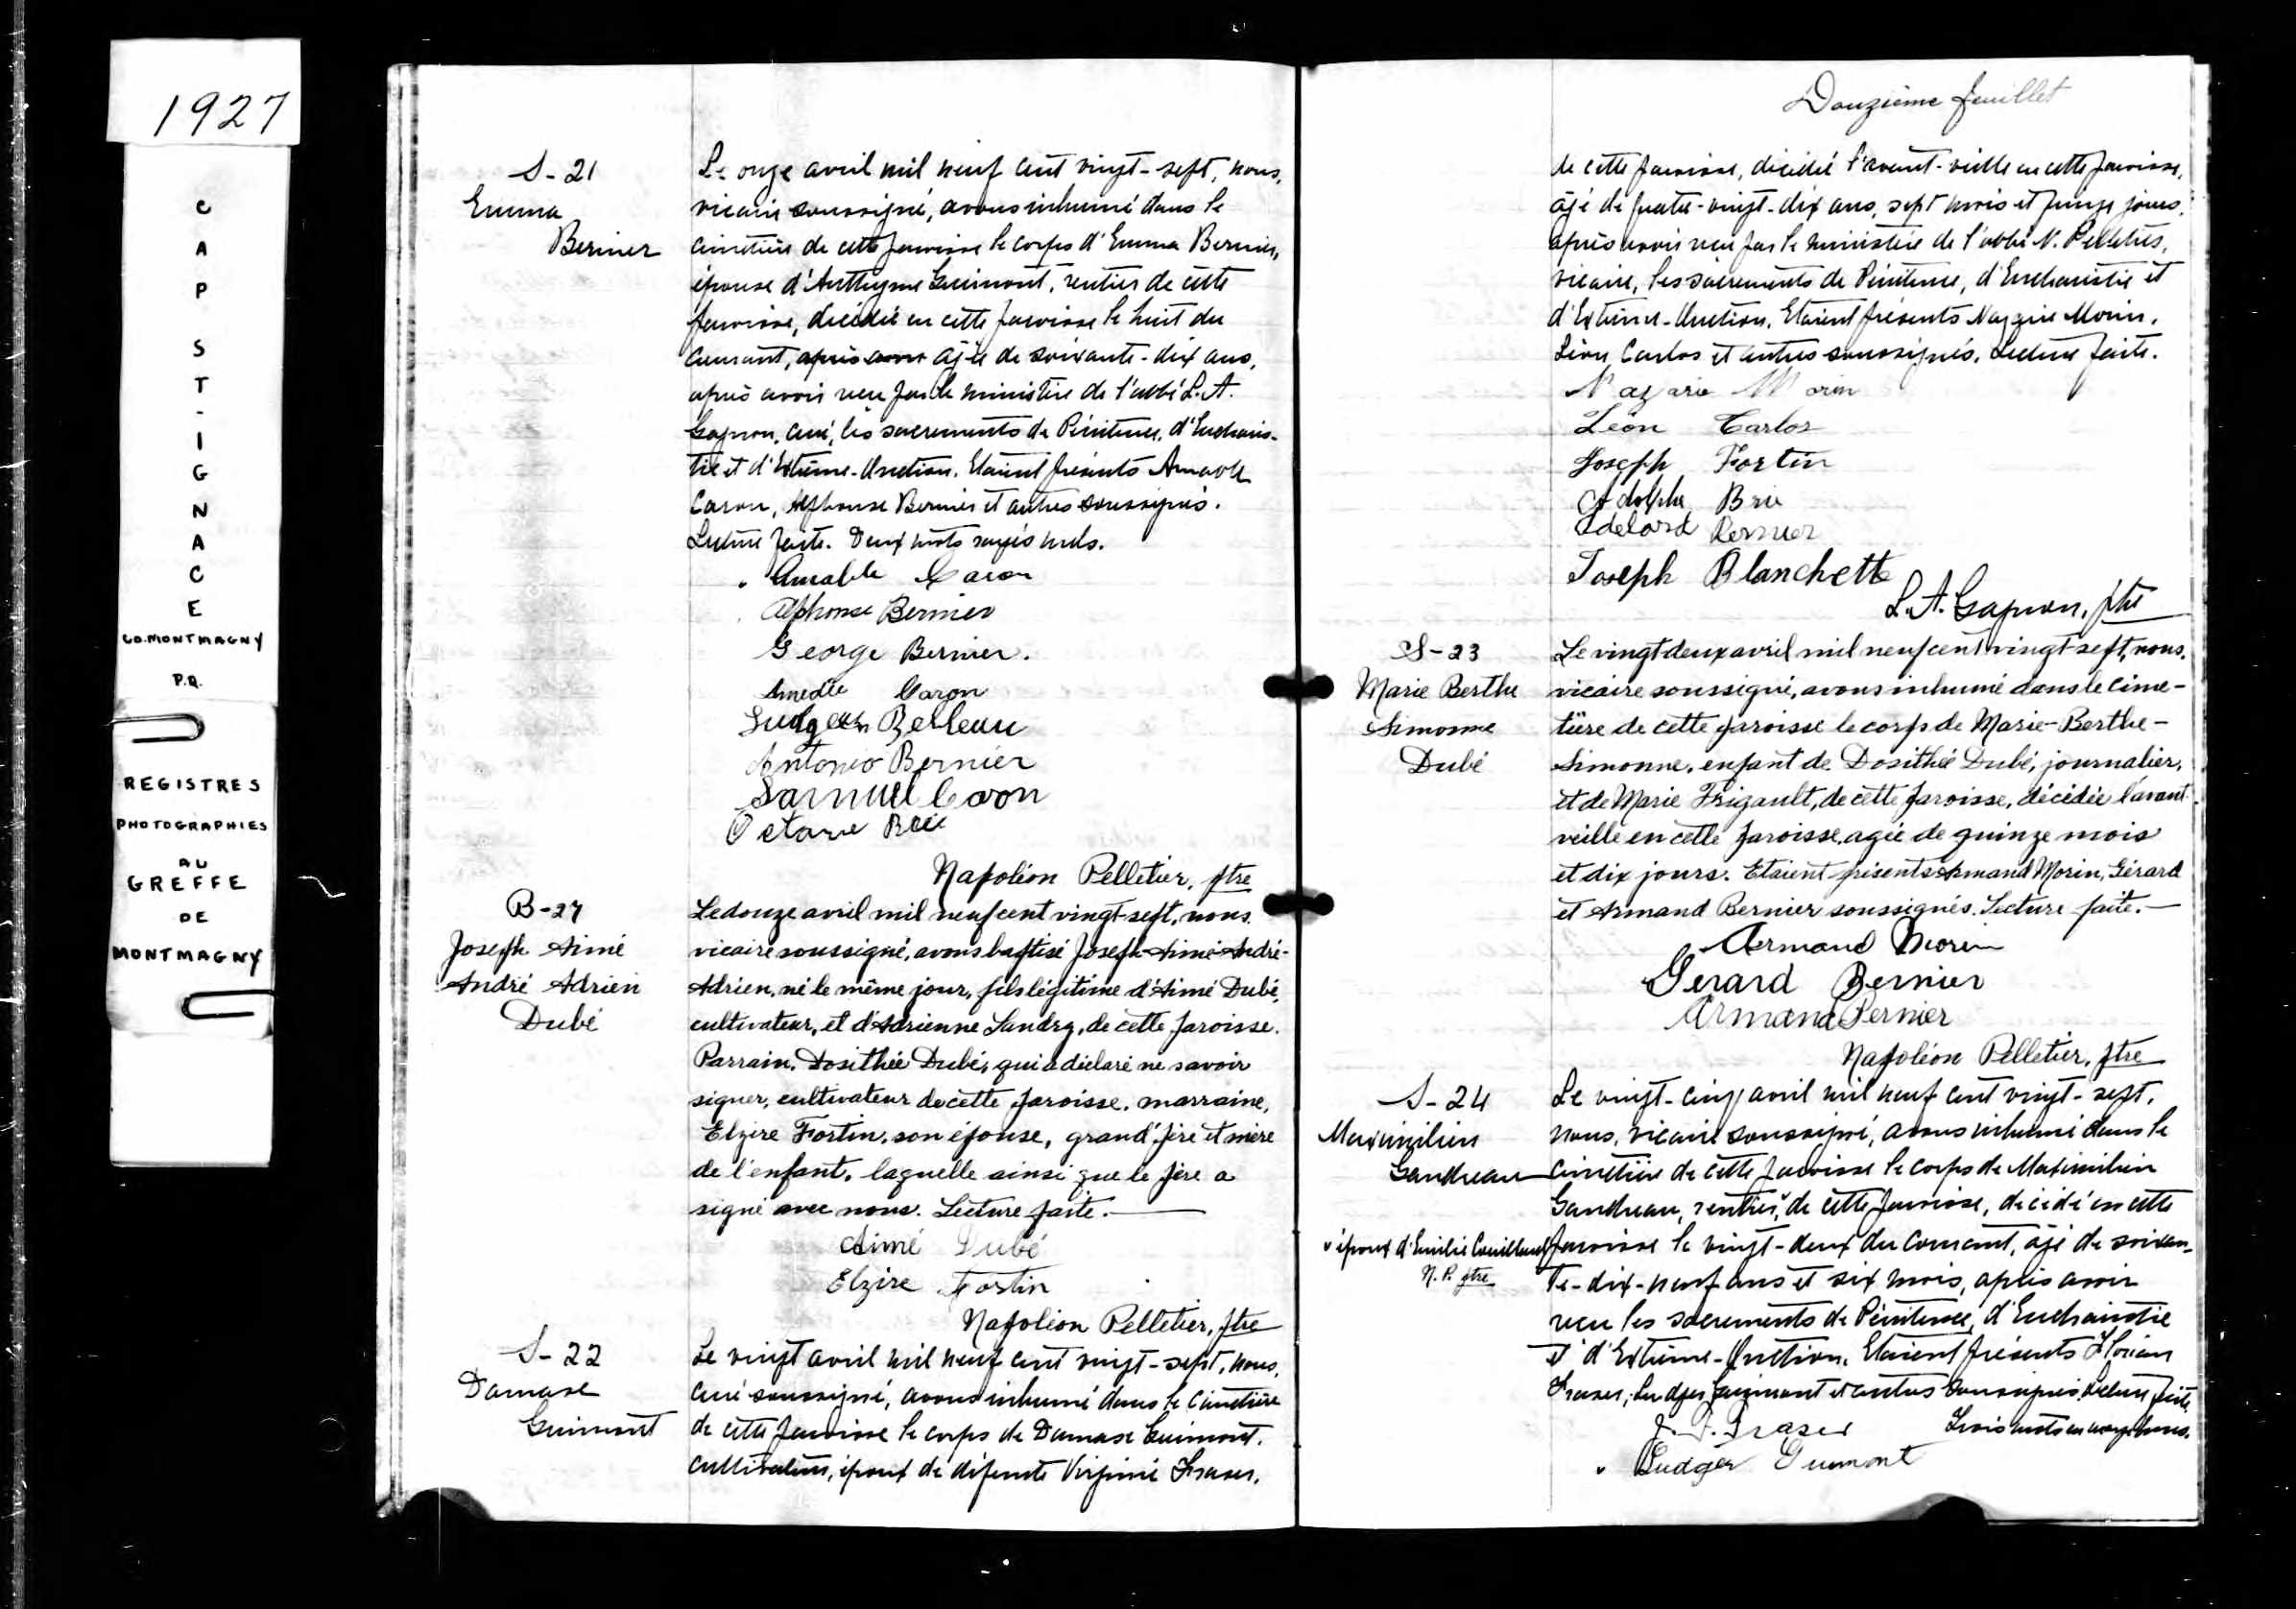 1927
CAP ST-IGNACE
CO. MONTMAGNY
P.Q.
REGISTRES
PHOTOGRAPHIES
AU
GREFFE
DE
MONTMAGNY
S-21
Emma
Bernier
Le onze avril mil neuf cent vingt-sept, nous,
vicaire soussigné, avons inhumé dans le
cimetière de cette paroisse le corps d'Emma Bernier,
épouse d'Anthyme Guimont, rentier de cette
paroisse, décédée en cette paroisse le huit du
courant, après avoir âgée de soixante-dix ans,
après avoir reçu par le ministère de l'abbé L.A.
Gagnon, curé, les sacrements de Pénitence, d'Eucharis-
tie et d'Extrême-Onction. Etaient présents Amable
Caron, Alphonse Bernier et autres soussignés.
Lecture faite. Deux mots rayés nuls.
Amable Caron
Alphonse Bernier
George Bernier.
Amedée Caron
Belleau
Antonio Bernier
Samuel Caron
Octave
Napoléon Pelletier, ptre
B-27
Joseph Aimé
André Adrien
Dubé
Le douze avril mil neuf cent vingt-sept, nous,
vicaire soussigné, avons baptisé Joseph-Aimé-André-
Adrien, né le même jour, fils légitime d'Aimé Dubé,
cultivateur, et d'Adrienne Landry, de cette paroisse.
Parrain, Dosithée Dubé, qui a déclaré ne savoir
signer, cultivateur de cette paroisse, marraine,
Elzire Fortin, son épouse, grand'père et mère
de l'enfant, laquelle ainsi que le père a
signé avec nous. Lecture faite.
Aimé Dubé
Elzire Fortin
Napoléon Pelletier, ptre
S-22
Damase
Guimont
Le vingt avril mil neuf cent vingt-sept, nous,
curé soussigné, avons inhumé dans le cimetière
de cette paroisse le corps de Damase Guimont,
cultivateur, époux de défunte Virginie Fraser,
Douzième feuillet
de cette paroisse, décédé l'avant-veille en cette paroisse,
âgé de quatre-vingt-dix ans, sept mois et quinze jours,
après avoir reçu par le ministère de l'abbé N. Pelletier,
vicaire, les sacrements de Pénitence, d'Eucharistie et
d'Extrême-Onction. Etaient présents Nazaire Morin,
Léon Carlos et autres soussignés. Lecture faite.
Nazaire Morin
Léon Carlos
Joseph Fortin
Adolphe Brie
Adelard Bernier
Joseph Blanchette
L.A. Gagnon, ptre
S-23
Marie Berthe
Simonne
Dubé
Le vingt-deux avril mil neuf cent vingt-sept, nous,
vicaire soussigné, avons inhumé dans le cime-
tière de cette paroisse le corps de Marie-Berthe-
Simonne, enfant de Dosithée Dubé, journalier,
et de Marie Frigault, de cette paroisse, décédée l'avant-
veille en cette paroisse, agée de quinze mois
et dix jours. Etaient présents Armand Morin, Gérard
et Armand Bernier soussignés. Lecture faite.
Armand Morin
Gerard Bernier
Armand Bernier
Napoléon Pelletier, ptre
S-24
Maximilien
Gaudreau
v époux d'Emilie Couillard
N.P. ptre
Le vingt-cinq avril mil neuf cent vingt-sept,
nous, vicaire soussigné, avons inhumé dans le
cimetière de cette paroisse le corps de Maximilien
Gaudreau, rentier, v de cette paroisse, décédé en cette
paroisse le vingt-deux du courant, âgé de soixan-
te-dix-neuf ans et six mois, après avoir
reçu les sacrements de Pénitence, d'Eucharistie
et d'Extrême-Onction. Etaient présents Florian
Fraser, Ludger Guimont et autres soussignés. Lecture faite.
J. F. Fraser Trois mots en marge bons.
Ludger Guimont